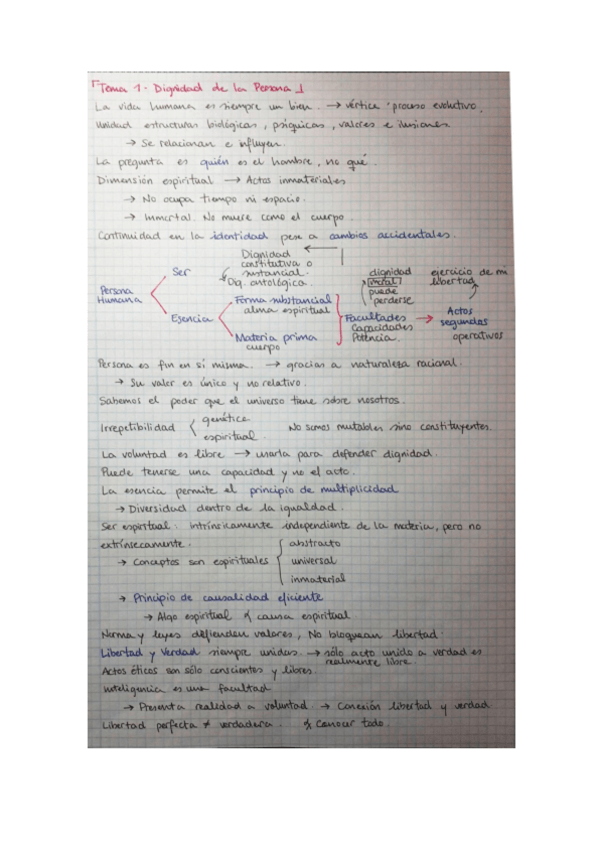 Tema 1 - Dignidad de la Persona
La vida humana es siempre un bien. → vértice proceso evolutivo.
Unidad estructuras biológicas, psíquicas, valores e ilusiones
→ Se relacionan e influyen.
La pregunta es quién es el hombre, no qué.
Dimensión espiritual → Actos inmateriales
→ No ocupa tiempo ni espacio.
→ Inmortal. No muere como el cuerpo.
Continuidad en la identidad pese a cambios accidentales.
Dignidad
constitutiva o
sustancial.
Dig. ontológica.
dignidad
moral
puede
perderse
ejercicio de mi
libertad
Persona
Humana
Ser
Esencia
Forma substancial
alma espiritual
Materia prima
cuerpo
Facultades
Capacidades
Potencia.
→ Actos
segundos
operativos
Persona es fin en sí misma. → gracias a naturaleza racional.
→ Su valor es único y no relativo.
Sabemos el poder que el universo tiene sobre nosotros.
Irrepetibilidad
genética
espiritual.
No somos mutables sino constituyentes.
La voluntad es libre → usarla para defender dignidad.
Puede tenerse una capacidad y no el acto.
La esencia permite el principio de multiplicidad
→ Diversidad dentro de la igualdad.
Ser espiritual: Intrínsicamente independiente de la materia, pero no
extrínsecamente.
→ Conceptos son espirituales
abstracto
universal
inmaterial
→ Principio de causalidad eficiente
→ Algo espiritual causa espiritual
Norma y leyes defienden valores, No bloquean libertad.
Libertad y Verdad siempre unidas. → sólo acto unido a verdad es
realmente libre.
Actos éticos son sólo conscientes y libres.
Inteligencia es una facultad
→ Presenta realidad a voluntad. → Conexión libertad y verdad
Libertad perfecta ≠ verdadera. Conocer todo.